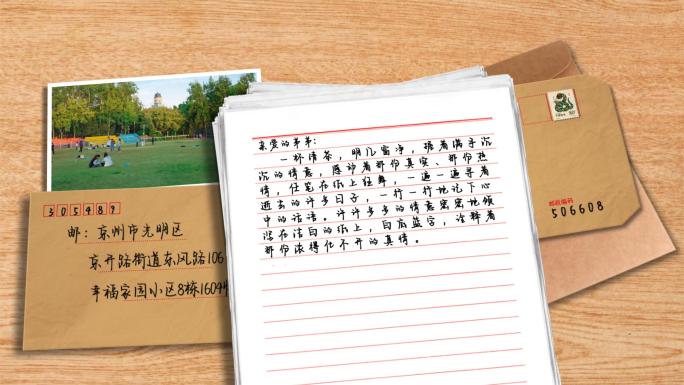 305489
邮：京州市光明区
京开路街道东风路106
幸福家园小区8栋1604
亲爱的爷爷：
一杯清茶，明几窗净，握着满手沉
沉的情意，感动着那份真实、那份热
情，任笔在纸上狂舞，一遍一遍寻着
逝去的许多日子，一行一行地记下心
中的话语。许许多多的情意密密地倾
泻在洁白的纸上，白底蓝字，诠释着
那份浓得化不开的真情。
邮政编码
506608